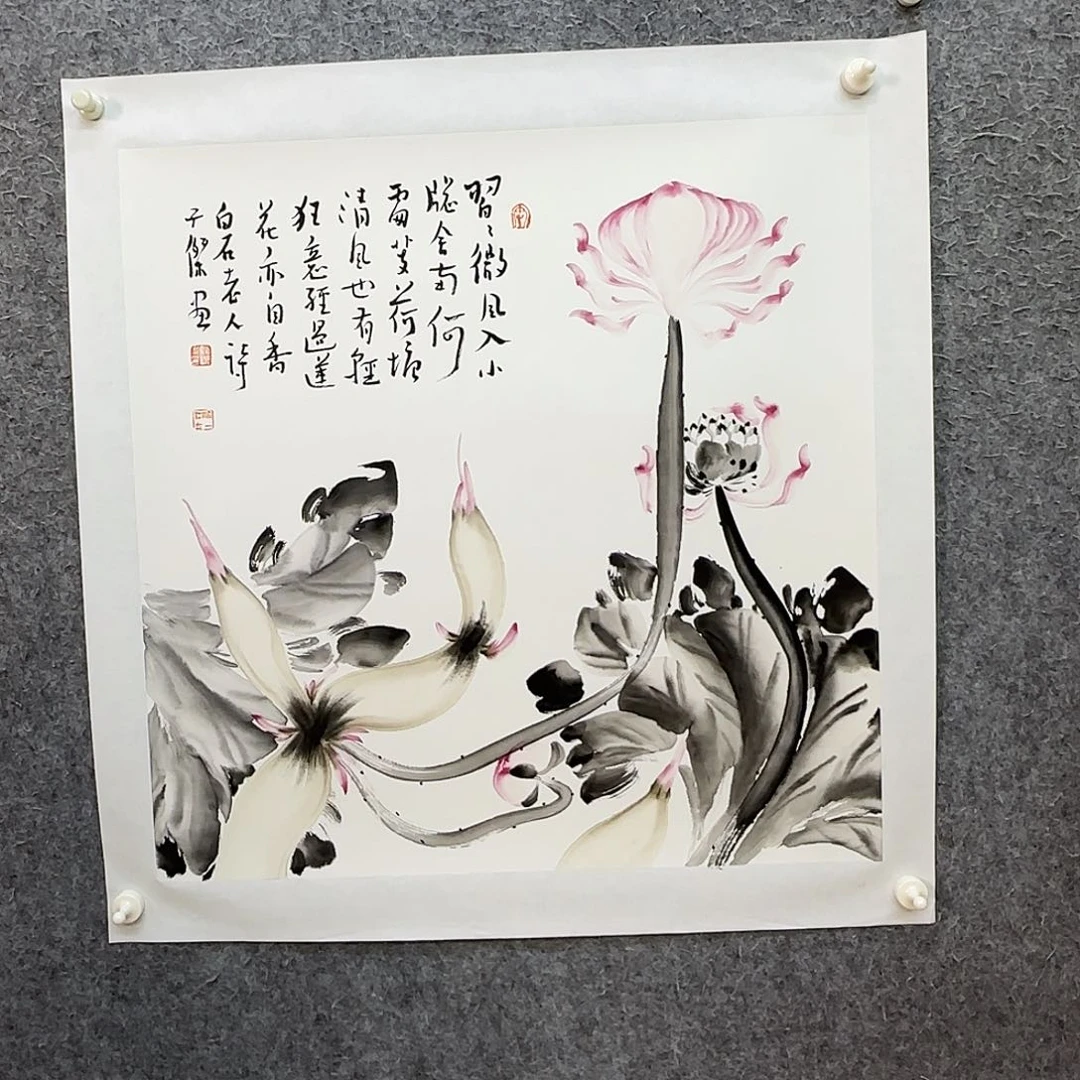 習〻微風入小
牕舍南何
需芰荷塘
清風也有輕
狂意經過蓮
花亦自香
白石老人詩
子傑畫